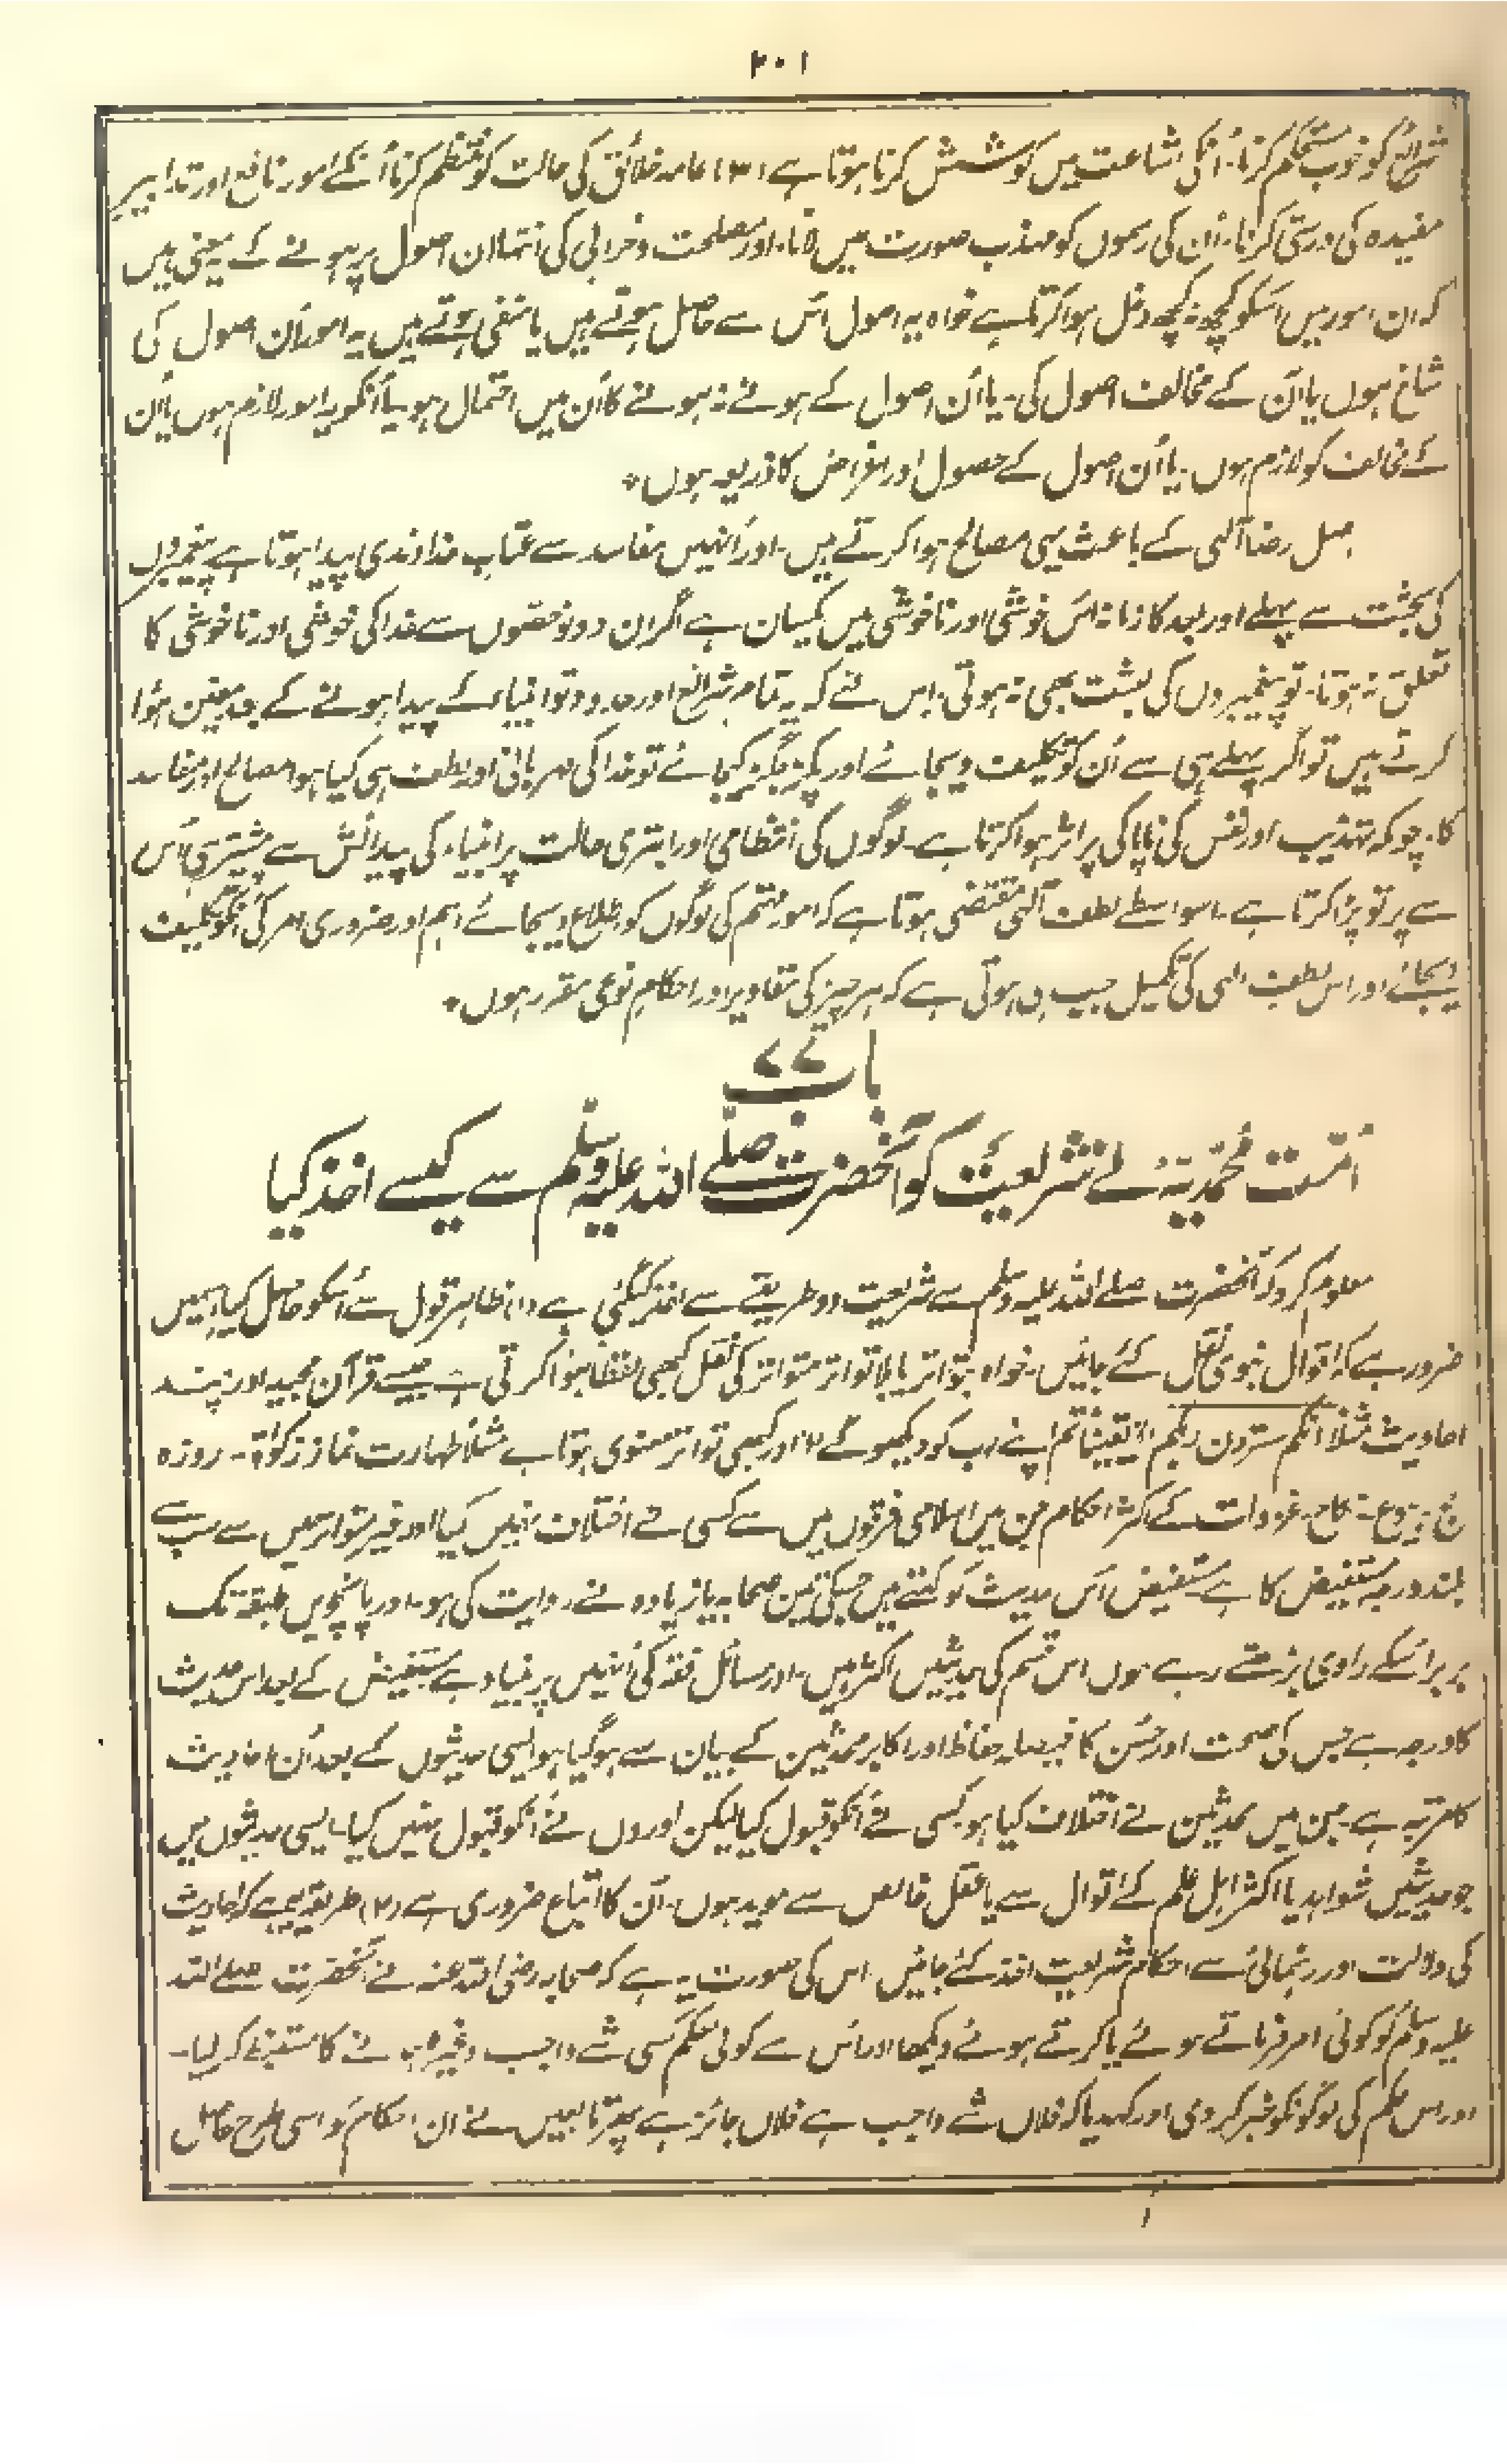 ۲۰۱
شرائع کو خوب مستحکم کرنا۔ اُنکی اشاعت میں کوشش کرنا ہوتا ہے (۳) عامہ خلائق کی حالت کو منتظم کرنا اُنکے امور نافع اور تدابیر
مفیدہ کی درستی کرنا۔ اُن کی رسموں کو مہذب صورت میں لانا۔ اور مصلحت وخرابی کی انتہا ان اصول پر ہونے کے یہ معنی ہیں
کہ ان امور میں اسکو کچھ نہ کچھ دخل ہوا کرتا ہے خواہ یہ اصول اُس سے حاصل ہوتے ہیں یا منفی ہوتے ہیں یہ امور اُن اصول کی
شاخ ہوں یا اُن کے مخالف اصول کی۔ یا اُن اصول کے ہونے نہ ہونے کا اُن میں احتمال ہو۔ یا اُنکو یہ امور لازم ہوں یا اُن
کے مخالف کو لازم ہوں۔ یا اُن اصول کے حصول اور اعراض کا ذریعہ ہوں *
اصل رضا آلہی کے باعث یہی مصالح ہوا کرتے ہیں۔ اور اُنہیں مفاسد سے عتاب خداوندی پیدا ہوتا ہے پیغمبروں
کی بعثت سے پہلے اور بعد کا زمانہ اس خوشی اور ناخوشی میں یکسان ہے اگر ان دونو حصوں سے خدا کی خوشی اور ناخوشی کا
تعلق نہ ہوتا۔ تو پیغمبروں کی بعثت بھی نہ ہوتی۔ اس لئے کہ یہ تمام شرائع اور حدود تو انبیاء کے پیدا ہونے کے بعد معین ہوا
کرتے ہیں تو اگر پہلے ہی سے اُن کو تکلیف دیجائے اور پکڑ جکڑ کیجائے تو خدا کی مہربانی اور لطف ہی کیا ہو۔ مصالح اور مفاسد
کا۔ چونکہ تہذیب اور نفس کی ناپاکی پر اثر ہوا کرتا ہے۔ لوگوں کی انتظامی اور ابتری حالت پر انبیاء کی پیدائش سے پیشتر ہی اُس
سے پرتو پڑا کرتا ہے۔ اسواسطے لطف آلہی مقتضی ہوتا ہے کہ امور مہتم کی لوگوں کو اطلاع دیجائے اہم اور ضروری امر کی انکو تکلیف
دیجائے اور اس لطف الہی کی تکمیل جب ہی ہوتی ہے کہ ہر چیز کی مقادیر اور احکام نوعی مقرر ہوں *
باب ۷۷
اُمّت مُحمّدیّہ نے شریعت کو آنحضرت صلے اللہ علیہ وسلم سے کیسے اخذ کیا
معلوم کرو کہ آنحضرت صلے اللہ علیہ وسلم سے شریعت دو طریقے سے اخذ کیگئی ہے (۱) ظاہر قول سے اُسکو حاصل کیا اسمیں
ضرور ہے کہ اقوال نبوی نقل کئے جائیں۔ خواہ بتواتر یا بلا تواتر متواتر کی نقل کبھی لفظاً ہوا کرتی ہے جیسے قرآن مجید اور چند
احادیث مثلاً انکم سترون ربکم "یقیناً تم اپنے رب کو دیکھو گے" اور کبھی تواتر معنوی ہوتا ہے مثلاً طہارت نماز زکوٰۃ۔ روزہ
حج۔ بیوع۔ نکاح۔ غزوات کے اکثر احکام جن میں اسلامی فرقوں میں سے کسی نے اختلاف نہیں کیا اور غیر متواتر میں سے سب سے
بلند درجہ مستفیض کا ہے مستفیض اُس حدیث کو کہتے ہیں جسکی تین صحابہ یا زیادہ نے روایت کی ہو۔ اور پانچویں طبقہ تک
برابر اُسکے راوی بڑہتے رہے ہوں اس قسم کی حدیثیں اکثر ہیں۔ اور مسائل فقہ کی اُنہیں پر بنیاد ہے مستفیض کے بعد اس حدیث
کا درجہ ہے جس کی صحت اور حُسن کا فیصلہ حفاظ اور اکابر محدثین کے بیان سے ہو گیا ہو ایسی حدیثوں کے بعد اُن احادیث
کا مرتبہ ہے۔ جن میں محدثین نے اختلاف کیا ہو۔ کسی نے اُنکو قبول کیا لیکن اوروں نے اُنکو قبول نہیں کیا۔ ایسی حدیثوں میں
جو حدیثیں شواہد یا اکثر اہل علم کے اقوال سے یا عقل خالص سے موید ہوں۔ اُن کا اتباع ضروری ہے (۲) طریقہ یہ ہے کہ احادیث
کی دلالت اور رہنمائی سے احکام شریعت اخذ کئے جائیں اس کی صورت یہ ہے کہ صحابہ رضی اللہ عنہ نے آنحضرت صلے اللہ
علیہ وسلم کو کوئی امر فرماتے ہوئے یا کرتے ہوئے دیکھا اور اس سے کوئی حکم کسی شے واجب وغیرہ ہونے کا مستنبط کر لیا۔
اور اس حکم کی لوگونکو خبر کر دی اور کہدیا کہ فلاں شے واجب ہے فلاں جائز ہے پھر تابعین نے ان احکام کو اسی طرح حاصل